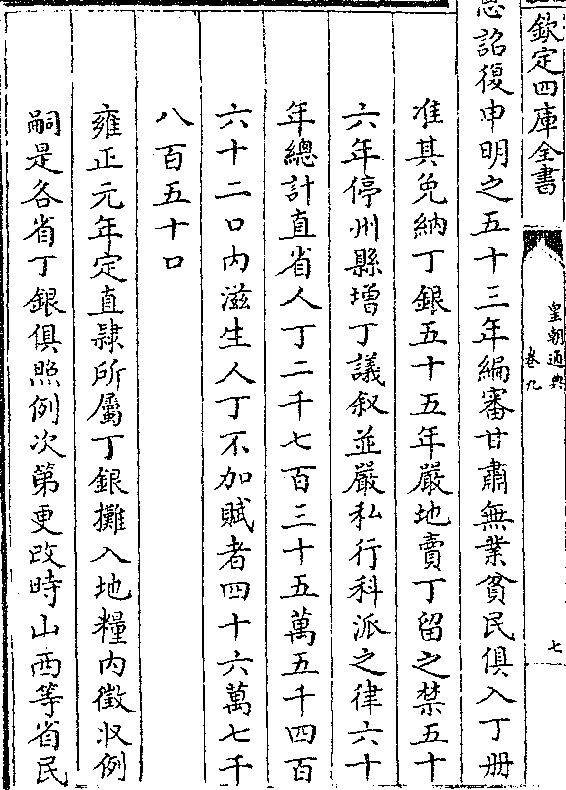 欽定四庫全書
皇朝通典
卷九
七
恩詔復申明之五十三年編審甘肅無業貧民俱入丁册
准其免納丁銀五十五年嚴地賣丁留之禁五十
六年停州縣增丁議叙並嚴私行科派之律六十
年總計直省人丁二千七百三十五萬五千四百
六十二口内滋生人丁不加賦者四十六萬七千
八百五十口
雍正元年定直隸所屬丁銀攤入地糧内徴收例
嗣是各省丁銀俱照例次第更改時山西等省民